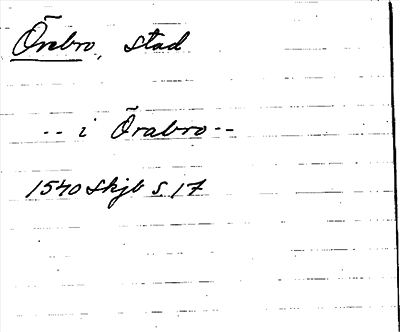 Örebro, stad
-- i Örabro --
1540 Skjb s 17